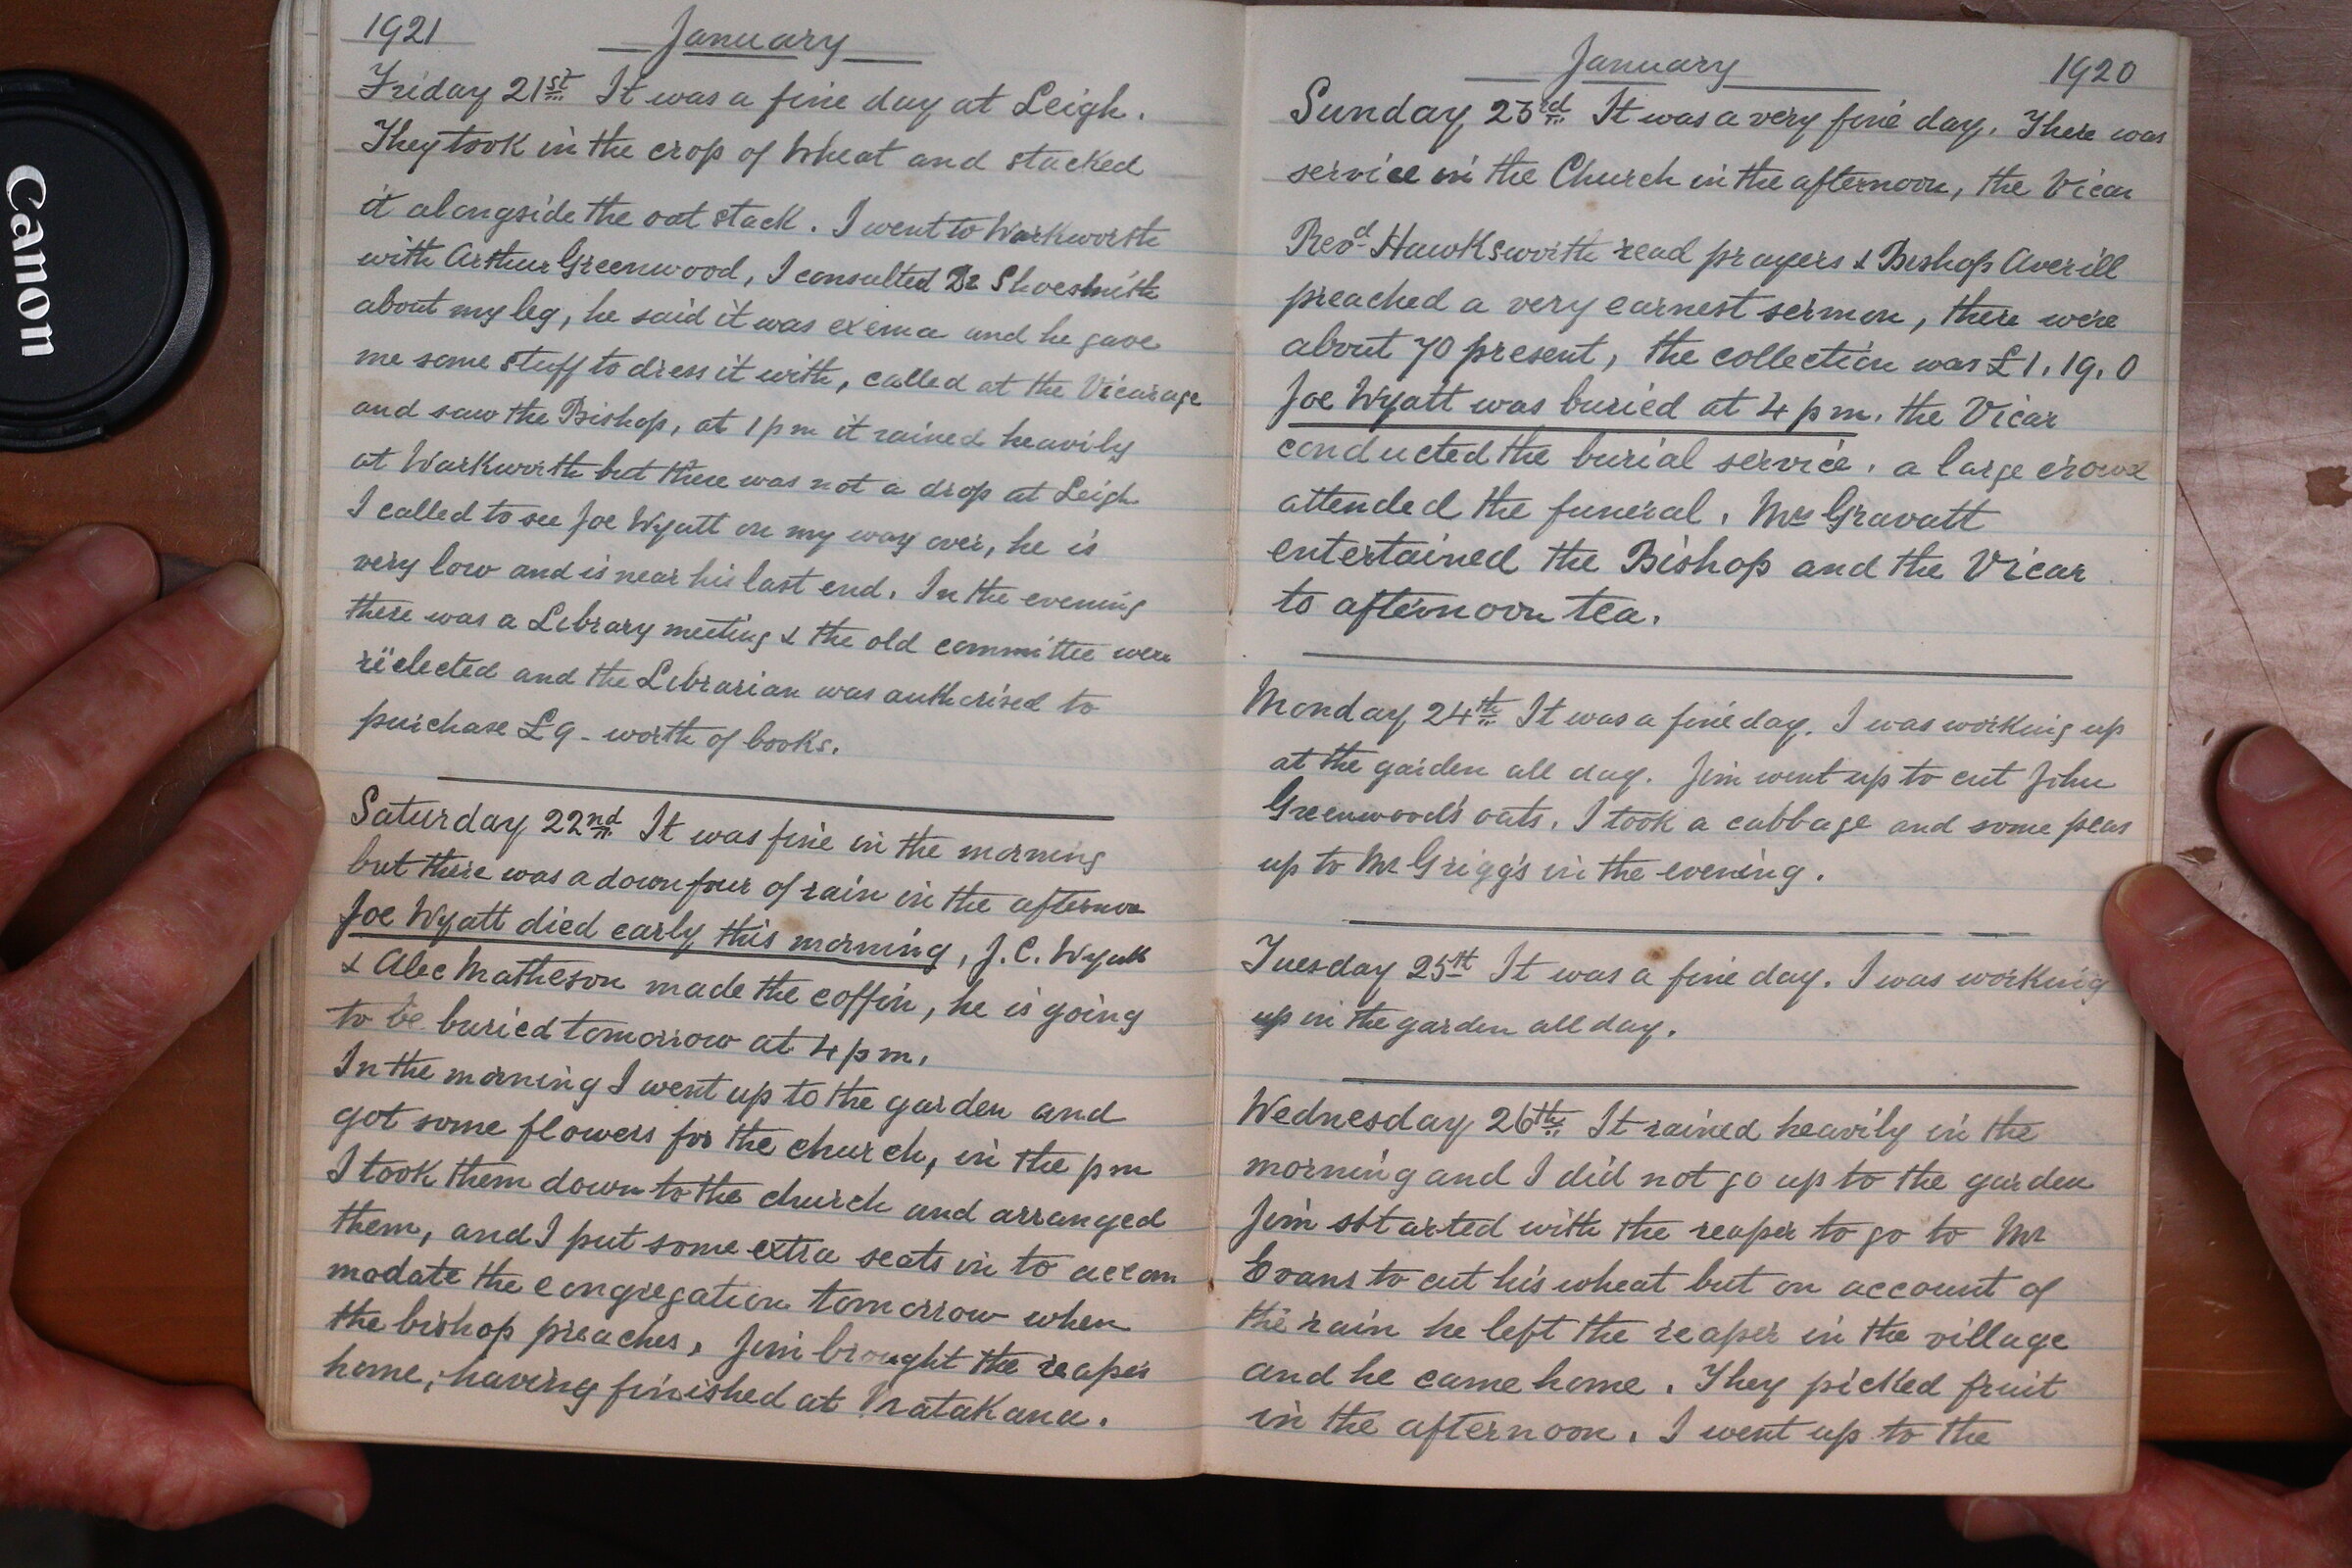 Canon
1921 January
Friday 21st It was a fine day at Leigh.
They took in the crop of Wheat and stacked
it alongside the oat stack. I went to Warkworth
with Arthur Greenwood, I consulted Dr Shoesmith
about my leg, he said it was exema and he gave
me some stuff to dress it with, called at the Vicarage
and saw the Bishop, at 1 pm it rained heavily
at Warkworth but there was not a drop at Leigh
I called to see Joe Wyatt on my way over, he is
very low and is near his last end. In the evening
there was a Library meeting & the old committee were
rëelected and the Librarian was authorised to
purchase £9 - worth of books.
Saturday 22nd It was fine in the morning
but there was a downfour of rain in the afternoon
Joe Wyatt died early this morning, J. C. Wyatt
& Alec Matheson made the coffin, he is going
to be buried tomorrow at 4 pm.
In the morning I went up to the garden and
got some flowers for the church, in the pm
I took them down to the church and arranged
them, and I put some extra seats in to accom
modate the congregation tomorrow when
the bishop preaches. Jim brought the reaper
home, having finished at Matakana.
January 1920
Sunday 23rd It was a very fine day. There was
service in the Church in the afternoon, the Vicar
Revd Hawksworth read prayers & Bishop Averill
preached a very earnest sermon, there were
about 70 present, the collection was £1. 19. 0
Joe Wyatt was buried at 4 pm. the Vicar
conducted the burial service. a large crowd
attended the funeral. Mrs Gravatt
entertained the Bishop and the Vicar
to afternoon tea.
Monday 24th It was a fine day. I was working up
at the garden all day. Jim went up to cut John
Greenwood's oats. I took a cabbage and some peas
up to Mr Grigg's in the evening.
Tuesday 25th It was a fine day. I was working
up in the garden all day.
Wednesday 26th It rained heavily in the
morning and I did not go up to the garden
Jim sstarted with the reaper to go to Mr
Evans to cut his wheat but on account of
the rain he left the reaper in the village
and he came home. They picked fruit
in the afternoon. I went up to the